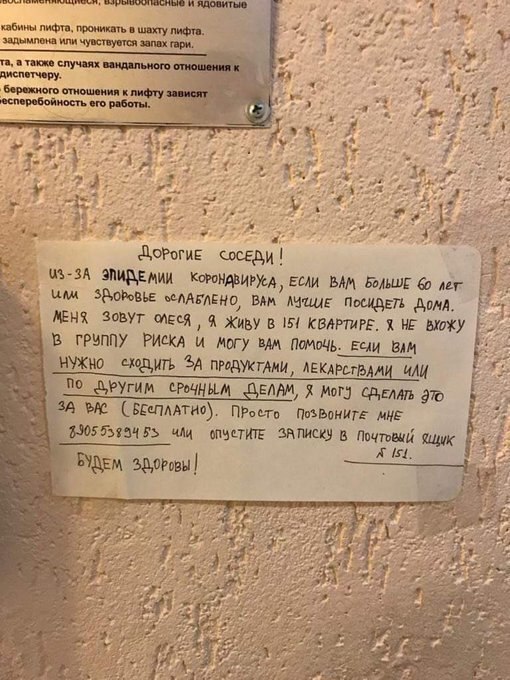 взрывоопасные и ядовитые
кабины лифта, проникать в шахту лифта.
задымлена или чувствуется запах гари.
а также случаях вандального отношения к
диспетчеру.
бережного отношения к лифту зависят
бесперебойность его работы.
ДОРОГИЕ СОСЕДИ!
ИЗ-ЗА ЭПИДЕМИИ КОРОНАВИРУСА, ЕСЛИ ВАМ БОЛЬШЕ 60 ЛЕТ
ИЛИ ЗДОРОВЬЕ ОСЛАБЛЕНО, ВАМ ЛУЧШЕ ПОСИДЕТЬ ДОМА.
МЕНЯ ЗОВУТ ОЛЕСЯ, Я ЖИВУ В 151 КВАРТИРЕ. Я НЕ ВХОЖУ
В ГРУППУ РИСКА И МОГУ ВАМ ПОМОЧЬ. ЕСЛИ ВАМ
НУЖНО СХОДИТЬ ЗА ПРОДУКТАМИ, ЛЕКАРСТВАМИ ИЛИ
ПО ДРУГИМ СРОЧНЫМ ДЕЛАМ, Я МОГУ СДЕЛАТЬ ЭТО
ЗА ВАС (БЕСПЛАТНО). ПРОСТО ПОЗВОНИТЕ МНЕ
89055389453 ИЛИ ОПУСТИТЕ ЗАПИСКУ В ПОЧТОВЫЙ ЯЩИК
№ 151.
БУДЕМ ЗДОРОВЫ!